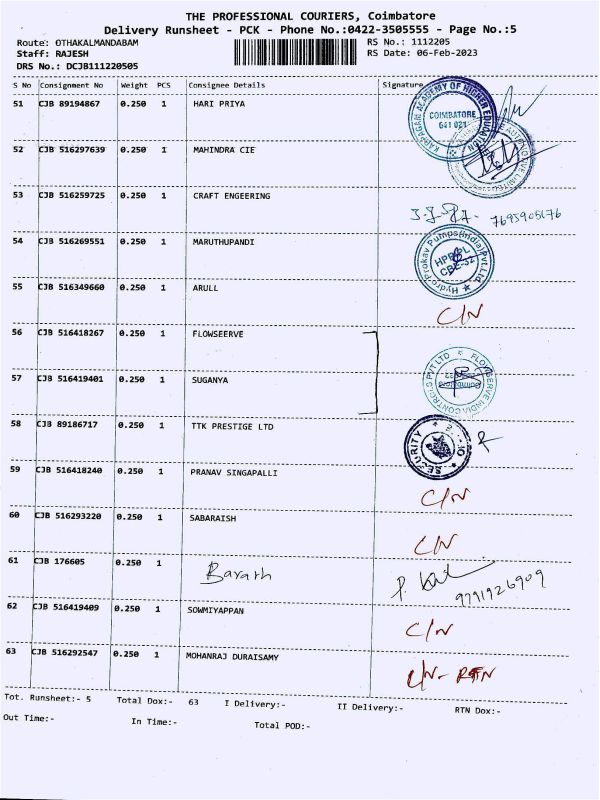 THE PROFESSIONAL COURIERS, Coimbatore
Delivery Runsheet - PCK - Phone No.:0422-3505555 - Page No.:5
Route: OTHAKALMANDABAM RS No.: 1112205
Staff: RAJESH RS Date: 06-Feb-2023
DRS No.: DCJB111220505
S No Consignment No Weight PCS Consignee Details Signature
51 CJB 89194867 0.250 1 HARI PRIYA
KARPAGAM ACADEMY OF HIGHER EDUCATION
COIMBATORE
641 021
52 CJB 516297639 0.250 1 MAHINDRA CIE
53 CJB 516259725 0.250 1 CRAFT ENGEERING 7695905176
54 CJB 516269551 0.250 1 MARUTHUPANDI
Hydro Prokav Pumps(India)Pvt.Ltd
55 CJB 516349660 0.250 1 ARULL C/N
56 CJB 516418267 0.250 1 FLOWSEERVE
57 CJB 516419401 0.250 1 SUGANYA
FLOWSERVE INDIA CONTROLS PVT LTD
58 CJB 89186717 0.250 1 TTK PRESTIGE LTD
SECURITY
59 CJB 516418240 0.250 1 PRANAV SINGAPALLI C/N
60 CJB 516293220 0.250 1 SABARAISH C/N
61 CJB 176605 0.250 1 Barath 9791926909
62 CJB 516419409 0.250 1 SOWMIYAPPAN C/N
63 CJB 516292547 0.250 1 MOHANRAJ DURAISAMY C/N- RTN
Tot. Runsheet:- 5 Total Dox:- 63 I Delivery:- II Delivery:- RTN Dox:-
Out Time:- In Time:- Total POD:-